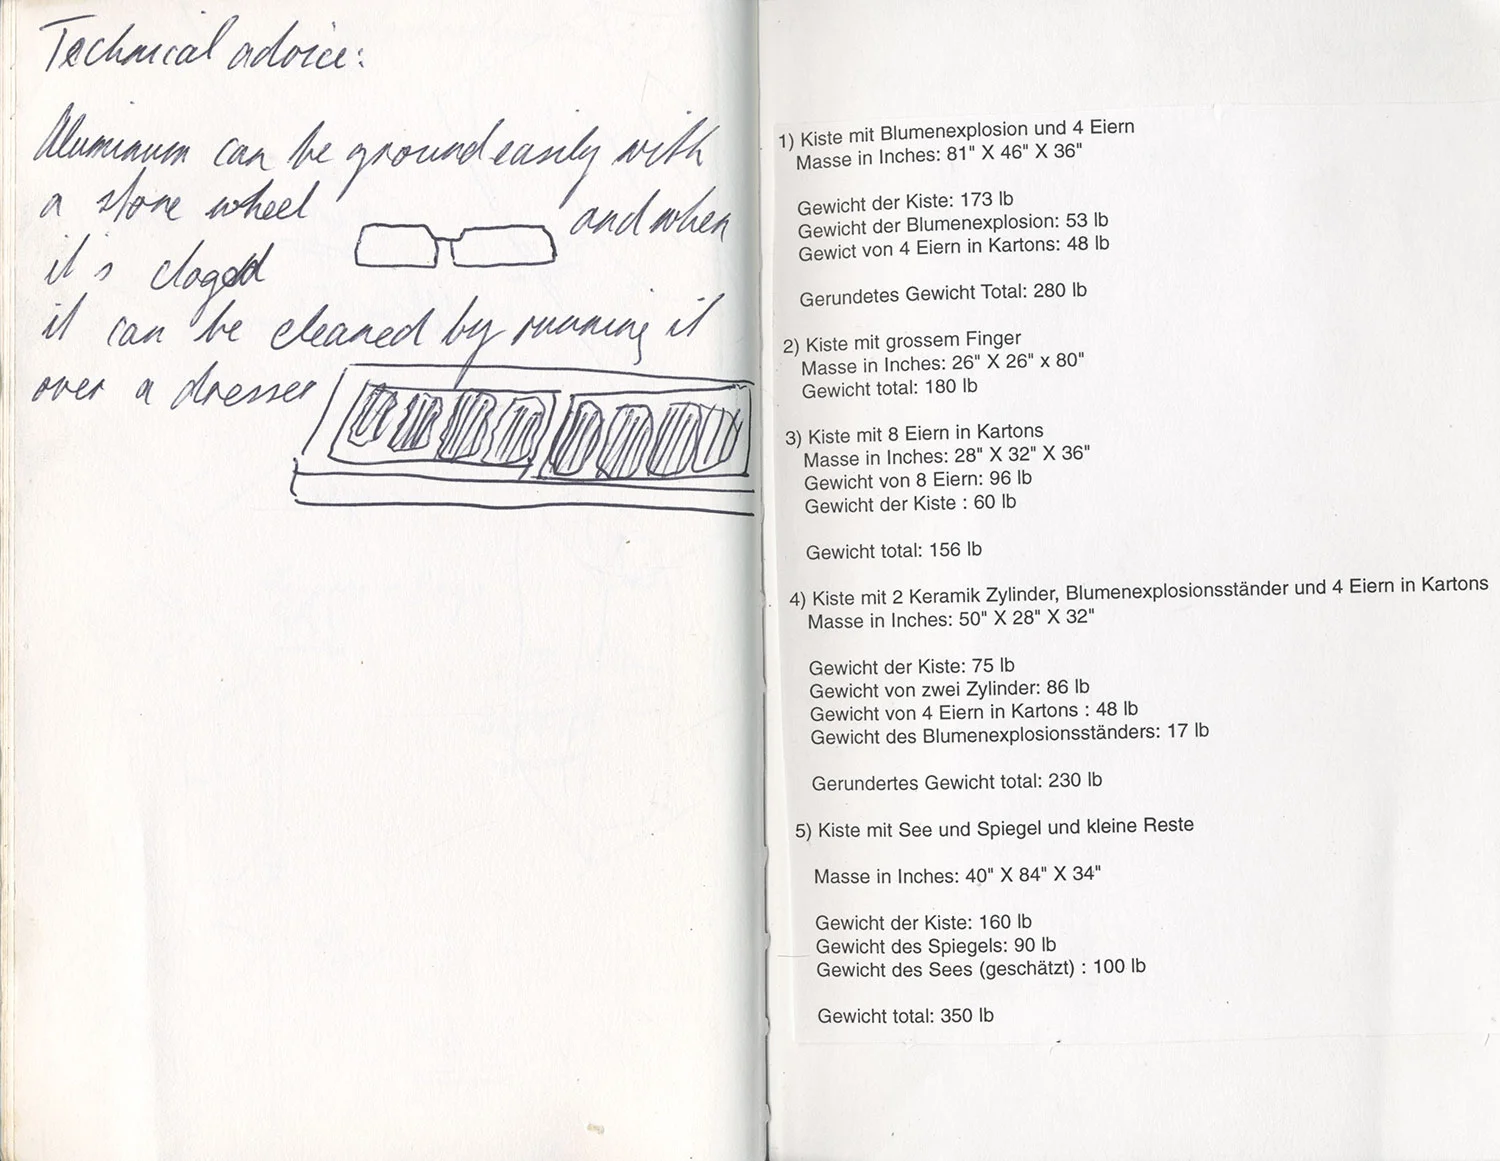 Technical advice:
Aluminum can be ground easily with
a stone wheel and when
it's cloged
it can be cleaned by running it
over a dresser
1) Kiste mit Blumenexplosion und 4 Eiern
Masse in Inches: 81" X 46" X 36"
Gewicht der Kiste: 173 lb
Gewicht der Blumenexplosion: 53 lb
Gewict von 4 Eiern in Kartons: 48 lb
Gerundetes Gewicht Total: 280 lb
2) Kiste mit grossem Finger
Masse in Inches: 26" X 26" x 80"
Gewicht total: 180 lb
3) Kiste mit 8 Eiern in Kartons
Masse in Inches: 28" X 32" X 36"
Gewicht von 8 Eiern: 96 lb
Gewicht der Kiste : 60 lb
Gewicht total: 156 lb
4) Kiste mit 2 Keramik Zylinder, Blumenexplosionsständer und 4 Eiern in Kartons
Masse in Inches: 50" X 28" X 32"
Gewicht der Kiste: 75 lb
Gewicht von zwei Zylinder: 86 lb
Gewicht von 4 Eiern in Kartons : 48 lb
Gewicht des Blumenexplosionsständers: 17 lb
Gerundertes Gewicht total: 230 lb
5) Kiste mit See und Spiegel und kleine Reste
Masse in Inches: 40" X 84" X 34"
Gewicht der Kiste: 160 lb
Gewicht des Spiegels: 90 lb
Gewicht des Sees (geschätzt) : 100 lb
Gewicht total: 350 lb